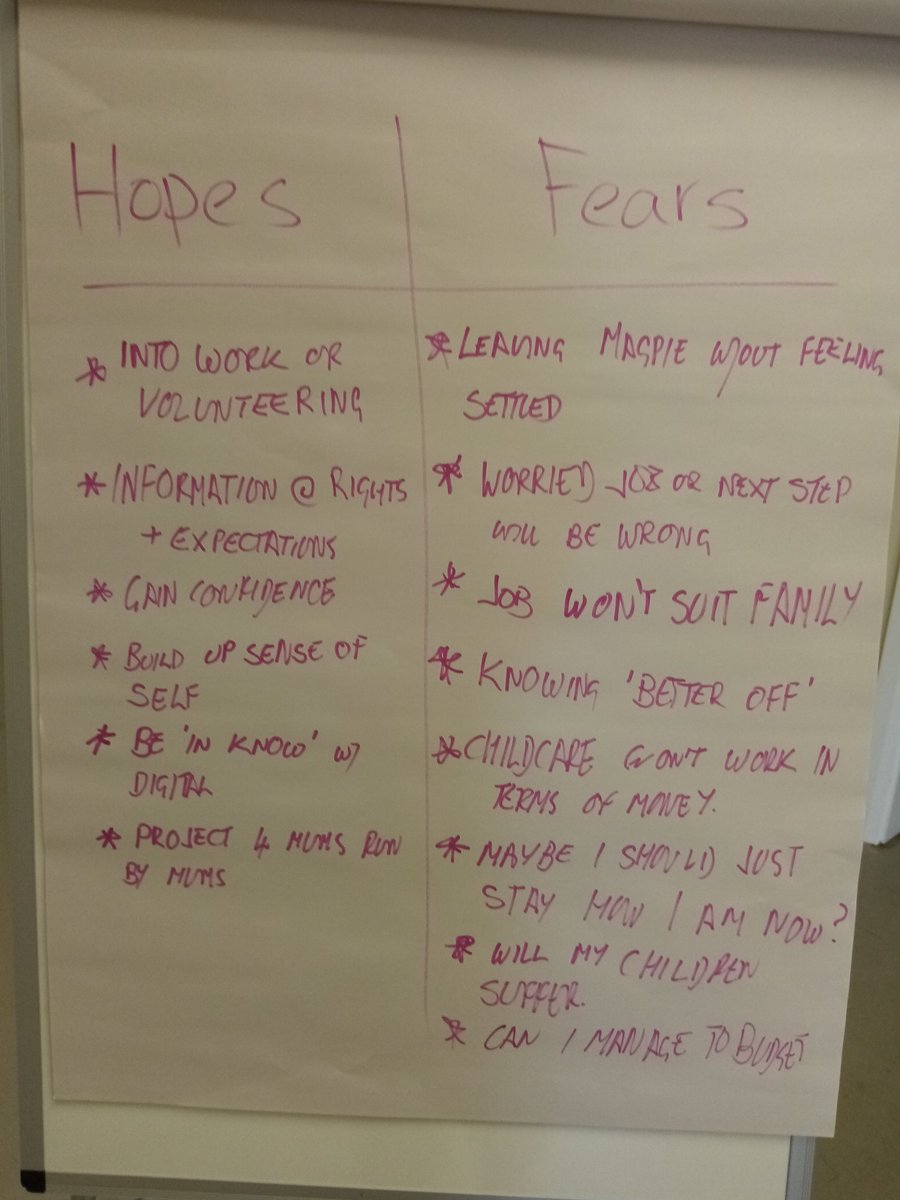 Hopes
* INTO WORK OR
VOLUNTEERING
* INFORMATION @ RIGHTS
+ EXPECTATIONS
* GAIN CONFIDENCE
* BUILD UP SENSE OF
SELF
* BE 'IN KNOW' W/
DIGITAL
* PROJECT 4 MUMS RUN
BY MUMS
Fears
* LEAVING MAGPIE W/OUT FEELING
SETTLED
* WORRIED JOB OR NEXT STEP
WILL BE WRONG
* JOB WON'T SUIT FAMILY
* KNOWING 'BETTER OFF'
* CHILDCARE WON'T WORK IN
TERMS OF MONEY.
* MAYBE I SHOULD JUST
STAY HOW I AM NOW?
* WILL MY CHILDREN
SUFFER.
* CAN I MANAGE TO BUDGET